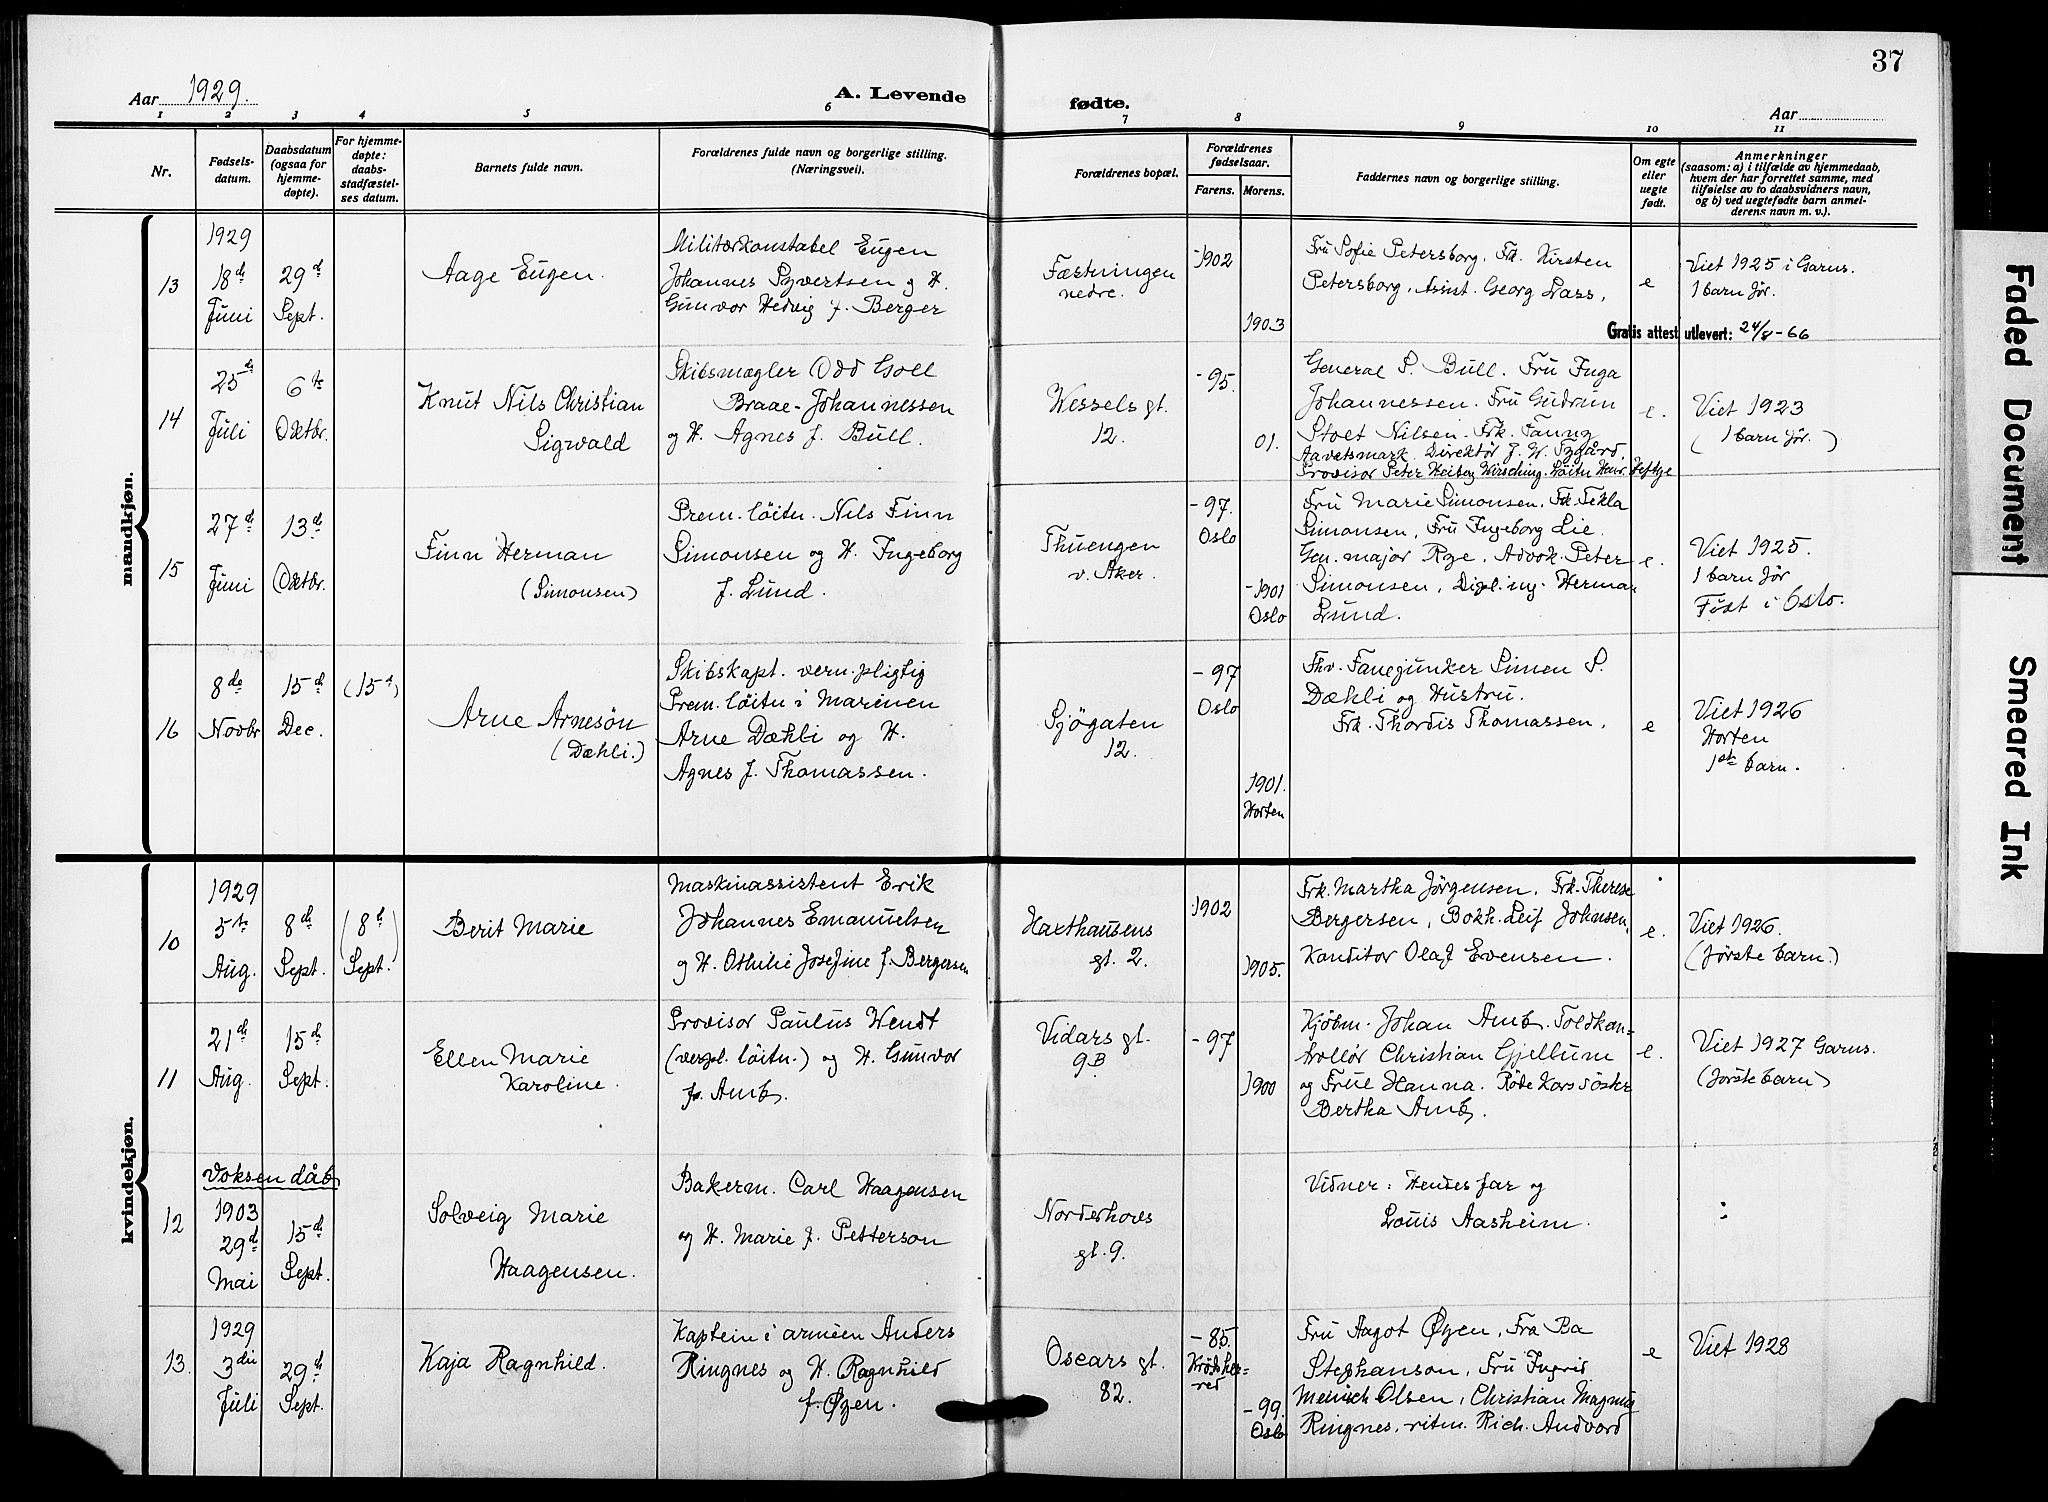 37
Aar 1929.
A. Levende
fødte.
Aar
1 2 3 4 5 6 7 8 9 10 11
Nr.
Fødsels-
datum.
Daabsdatum
(ogsaa for
hjemme-
døpte).
For hjemme-
døpte:
daabs-
stadfæstel-
ses datum.
Barnets fulde navn.
Forældrenes fulde navn og borgerlige stilling.
(Næringsvei).
Forældrenes bopæl.
Forældrenes
fødselsaar.
Farens. Morens.
Faddernes navn og borgerlige stilling.
Om egte
eller
uegte
født.
Anmerkninger
(saasom: a) i tilfælde av hjemmedaab,
hvem der har forrettet samme, med
tilføielse av to daabsvidners navn,
og b) ved uegtefødte barn anmel-
derens navn m. v.).
mandkjøn.
13
1929
18de
Juni
29de
Sept.
Aage Eugen.
Militærkonstabel Eugen
Johannes Syvertsen og H.
Gunvor Hedvig f. Berger
Fæstningen
nedre.
-1902
1903
Fru Sofie Petersborg, Frk. Kirsten
Petersborg, Assist. Georg Lass,
e
Viet 1925 i Garns.
1 barn før.
Gratis attest utlevert: 24/8-66
14
25de
Juli
6te
Oktbr.
Knut Nils Christian
Sigwald
Skibsmægler Odd Goll
Braae-Johannessen
og H. Agnes f. Bull.
Wessels gt.
12.
-95.
01.
General S. Bull. Fru Inga
Johannessen. Fru Gudrun
Stolt Nilsen. Frk. Fanny
Aavatsmark. Direktør J. W. Nygård.
Provisor Peter Heiberg Wirsching. Løitn Henr. Heftye
e.
Viet 1923
(1 barn før.)
15
27de
Juni
13de
Oktbr.
Finn Herman
(Simonsen)
Prem. løitn. Nils Finn
Simonsen og H. Ingeborg
f. Lund.
Thuengen
v. Aker.
-97.
Oslo
-1901
Oslo
Fru Marie Simonsen, Frk. Tekla
Simonsen, Fru Ingeborg Lie.
Gen. major Rye, Advok. Peter
Simonsen, Dipl. ing. Herman
Lund.
e.
Viet 1925.
1 barn før
Født i Oslo.
16
8de
Novbr
15de
Dec.
(15d)
Arne Arnesøn
(Dæhli.)
Skibskapt. vern.pligtig
Prem. løitn i Marinen
Arne Dæhli og H.
Agnes f. Thomassen.
Sjøgaten
12.
-97
Oslo
1901.
Horten
Fhv. Fanejunker Simen S.
Dæhli og Hustru.
Frk. Thordis Thomassen.
e
Viet 1926
Horten
1ste barn.
kvindekjøn.
10
1929
5te
Aug.
8de
Sept.
(8de
Sept.)
Berit Marie
Maskinassistent Erik
Johannes Emanuelsen
og H. Othilie Josefine f. Bergersen
Haxthausens
gt. 2.
1902
1905.
Frk. Martha Jørgensen, Frk. Therese
Bergersen, Bokh. Leif Johnsen,
Konditor Olaf Evensen.
e.
Viet 1926.
(første barn.)
11
21de
Aug.
15de
Sept.
Ellen Marie
Karoline.
Provisor Paulus Wendt
(vernpl. løitn.) og H. Gunvor
f. Amb.
Vidars gt.
9B
-97
1900
Kjøbm. Johan Amb. Toldkon-
trollør Christian Gjellum
og Frue Hanna. Røde Korssøster
Bertha Amb.
e.
Viet 1927 Garns.
(første barn)
12
Voksen dåb
1903
29de
Mai
15de
Sept.
Solveig Marie
Haagensen.
Bakerm. Carl Haagensen
og H. Marie f. Petterson
Norderhovs
gt. 9.
Vidner: Hendes far og
Louis Aasheim.
13.
1929
3die
Juli
29de
Sept.
Kaja Ragnhild.
Kaptein i armeen Anders
Ringnes og H. Ragnhild
f. Øyen.
Oscars gt.
82.
-85.
Krødshe-
red
-99.
Oslo
Fru Aagot Øyen, Fra Ba
Stephanson, Fru Ingrid
Meinich Olsen, Christian Magnus
Ringnes, ritm. Rich. Andvord
e
Viet 1928
Faded Document
Smeared Ink